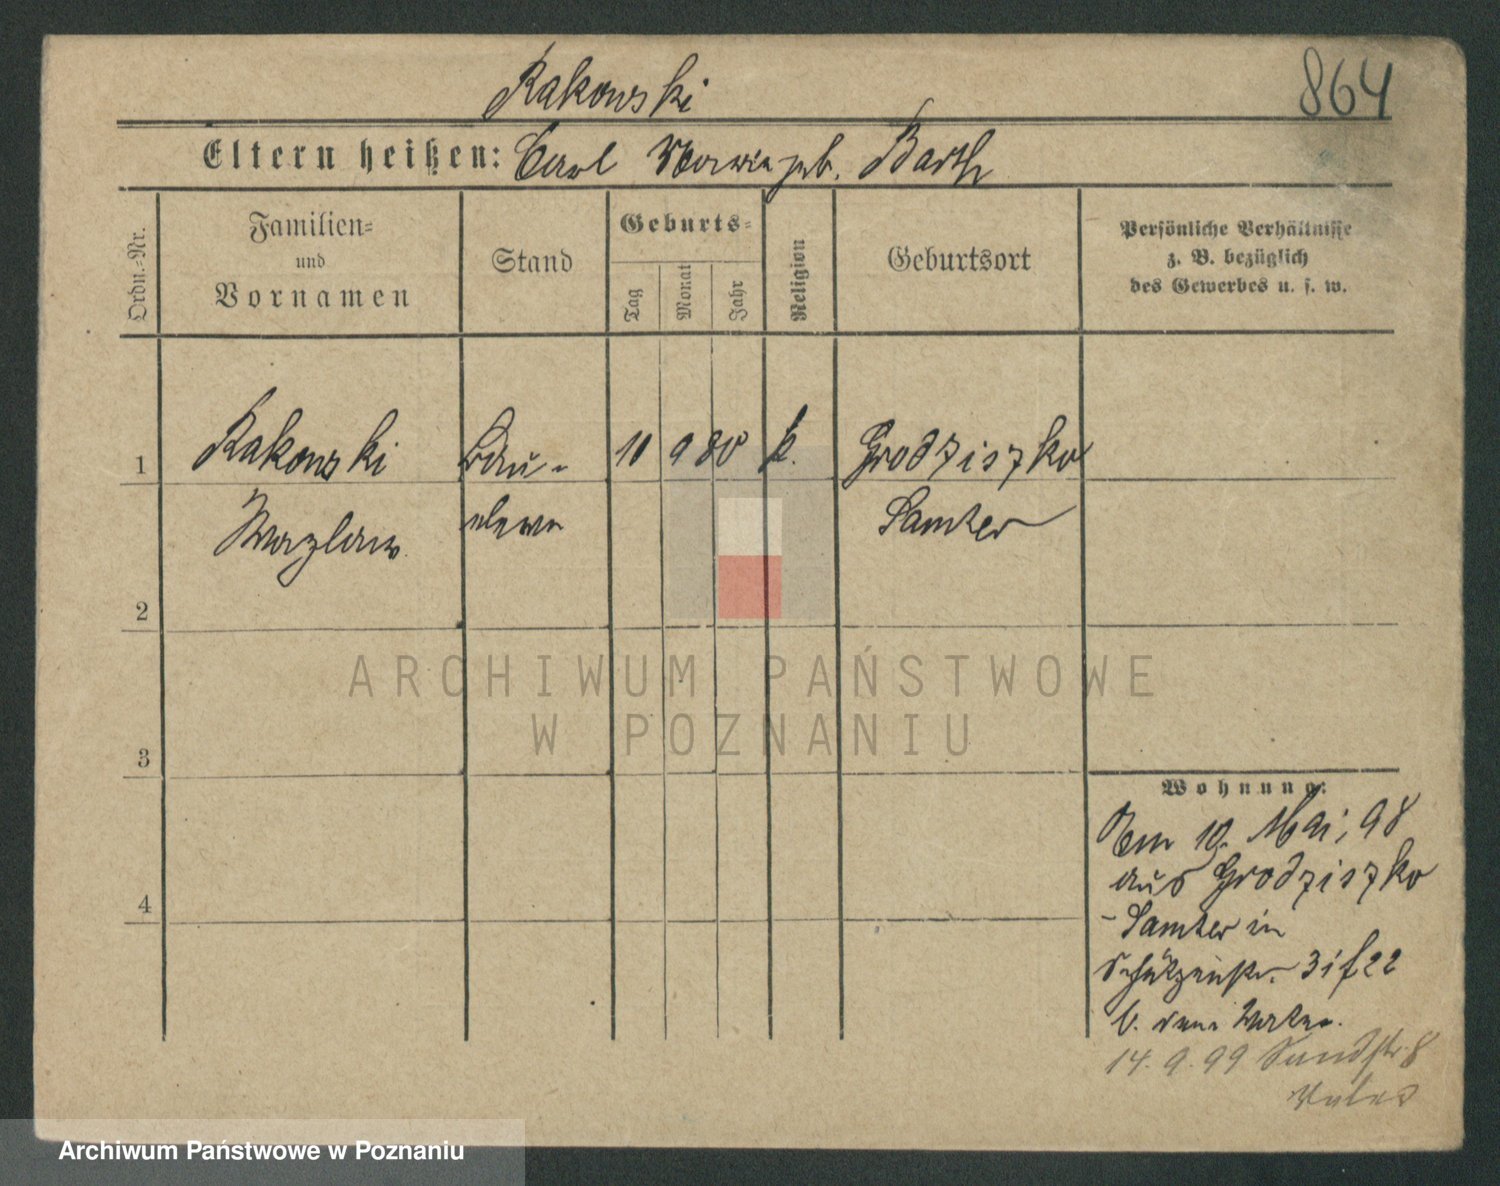 Rakowski
864
Eltern heißen: Carl Maria geb. Barth
Ordn.-Nr.
Familien-
und
Vornamen
Stand
Geburts-
Tag
Monat
Jahr
Religion
Geburtsort
Persönliche Verhältnisse
z. B. bezüglich
des Gewerbes u. s. w.
1 Rakowski Bau- 10 9 80 k. Grodziszko
Wazlaw eleve Samter
2
3
4
Wohnung:
Am 10. Mai 98
aus Grodziszko
- Samter in
Schützenstr. 31 f 22
b. dem Vater.
14. 9. 99 Sandstr. 8
ARCHIWUM PAŃSTWOWE
W POZNANIU
Archiwum Państwowe w Poznaniu